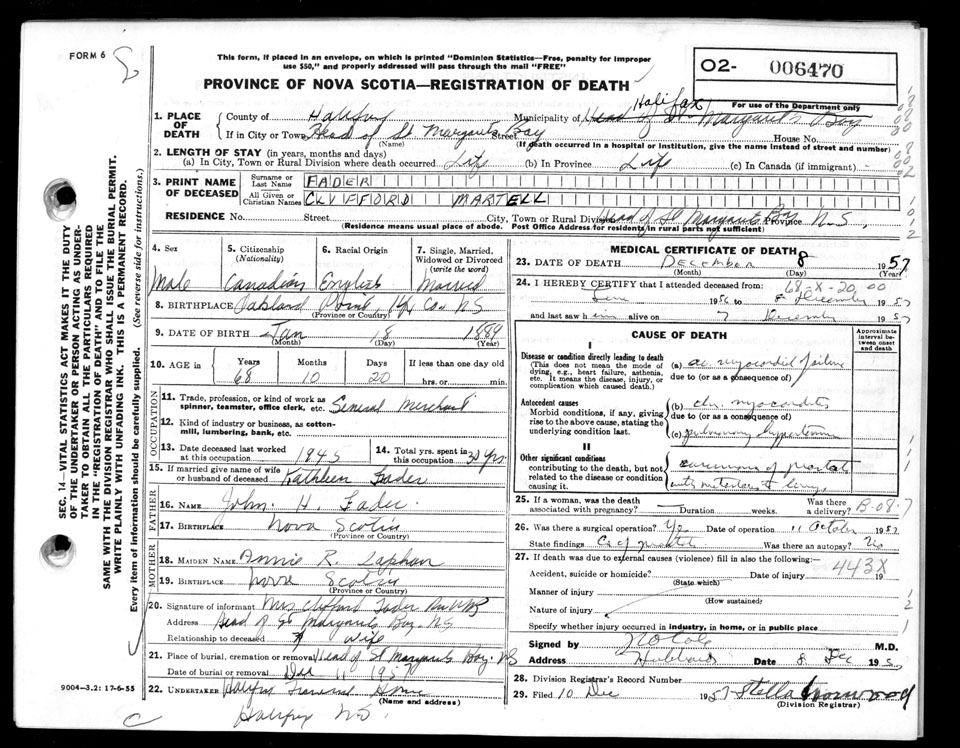 FORM 6
This form, if placed in an envelope, on which is printed "Dominion Statistics—Free, penalty for improper
use $50," and properly addressed will pass through the mail "FREE"
PROVINCE OF NOVA SCOTIA—REGISTRATION OF DEATH
O2- 006470
For use of the Department only
1. PLACE OF DEATH
County of Halifax Municipality of Halifax Head of St Margaret's Bay
If in City or Town Head of St Margarets Bay Street House No.
(Name) (If death occurred in a hospital or institution, give the name instead of street and number)
2. LENGTH OF STAY (in years, months and days)
(a) In City, Town or Rural Division where death occurred Life (b) In Province Life (c) In Canada (if immigrant) -
3. PRINT NAME OF DECEASED
Surname or Last Name FADER
All Given or Christian Names CLIFFORD MARTELL
RESIDENCE No. Street City, Town or Rural Division Head of St Margarets Bay Province N-S,
(Residence means usual place of abode. Post Office Address for residents in rural parts not sufficient)
4. Sex 5. Citizenship (Nationality) 6. Racial Origin 7. Single, Married, Widowed or Divorced (write the word)
Male Canadian English Married
8. BIRTHPLACE Oakland Point, Hfx Co- NS
(Province or Country)
9. DATE OF BIRTH Jan 18 1889
(Month) (Day) (Year)
10. AGE in Years Months Days If less than one day old
68 10 20 hrs. or min.
OCCUPATION
11. Trade, profession, or kind of work as spinner, teamster, office clerk, etc. General Merchant
12. Kind of industry or business, as cotton-mill, lumbering, bank, etc.
13. Date deceased last worked at this occupation 1945 14. Total yrs. spent in this occupation 30 yrs.
15. If married give name of wife or husband of deceased Kathleen Fader
FATHER
16. NAME John. H. Fader
17. BIRTHPLACE Nova Scotia
(Province or Country)
MOTHER
18. MAIDEN NAME Annie R.
19. BIRTHPLACE Nova Scotia
(Province or Country)
20. Signature of informant Mrs Clifford Fader
Address Head of St Margarets Bay. NS
Relationship to deceased wife
21. Place of burial, cremation or removal Head of St Margarets Bay. NS
Date of burial or removal Dec 11 1957
22. UNDERTAKER Halifax Funeral Home
(Name and address)
Halifax NS.
MEDICAL CERTIFICATE OF DEATH
23. DATE OF DEATH December 8 1957
(Month) (Day) (Year)
24. I HEREBY CERTIFY that I attended deceased from: 68-X-20-00
1956 to December 1957
and last saw him alive on 7 December 1957
CAUSE OF DEATH
Approximate interval between onset and death
I
Disease or condition directly leading to death
(This does not mean the mode of dying, e.g., heart failure, asthenia, etc. It means the disease, injury, or complication which caused death.)
(a) ac. myocardial failure
due to (or as a consequence of)
Antecedent causes
Morbid conditions, if any, giving rise to the above cause, stating the underlying condition last.
(b) chr. myocarditis
due to (or as a consequence of)
(c) pulmonary hypertension
II
Other significant conditions
contributing to the death, but not related to the disease or condition causing it.
carcinoma of prostate
25. If a woman, was the death associated with pregnancy? Duration weeks. Was there a delivery? B-08-7
26. Was there a surgical operation? Yes Date of operation 11 October 1957
State findings Ca of prostate Was there an autopsy? No
27. If death was due to external causes (violence) fill in also the following: 443X
Accident, suicide or homicide? Date of injury 19
(State which)
Manner of injury
(How sustained)
Nature of injury
Specify whether injury occurred in industry, in home, or in public place
Signed by M.D.
Address Hubbards Date 8 Dec 1957
28. Division Registrar's Record Number
29. Filed 10 Dec 1957 Stella
(Division Registrar)
9004—3.2: 17-6-55
SEC. 14—VITAL STATISTICS ACT MAKES IT THE DUTY
OF THE UNDERTAKER OR PERSON ACTING AS UNDER-
TAKER TO OBTAIN ALL THE PARTICULARS REQUIRED
IN THE "REGISTRATION OF DEATH" AND TO FILE THE
SAME WITH THE DIVISION REGISTRAR WHO SHALL ISSUE THE BURIAL PERMIT.
WRITE PLAINLY WITH UNFADING INK. THIS IS A PERMANENT RECORD.
Every item of information should be carefully supplied. (See reverse side for instructions.)